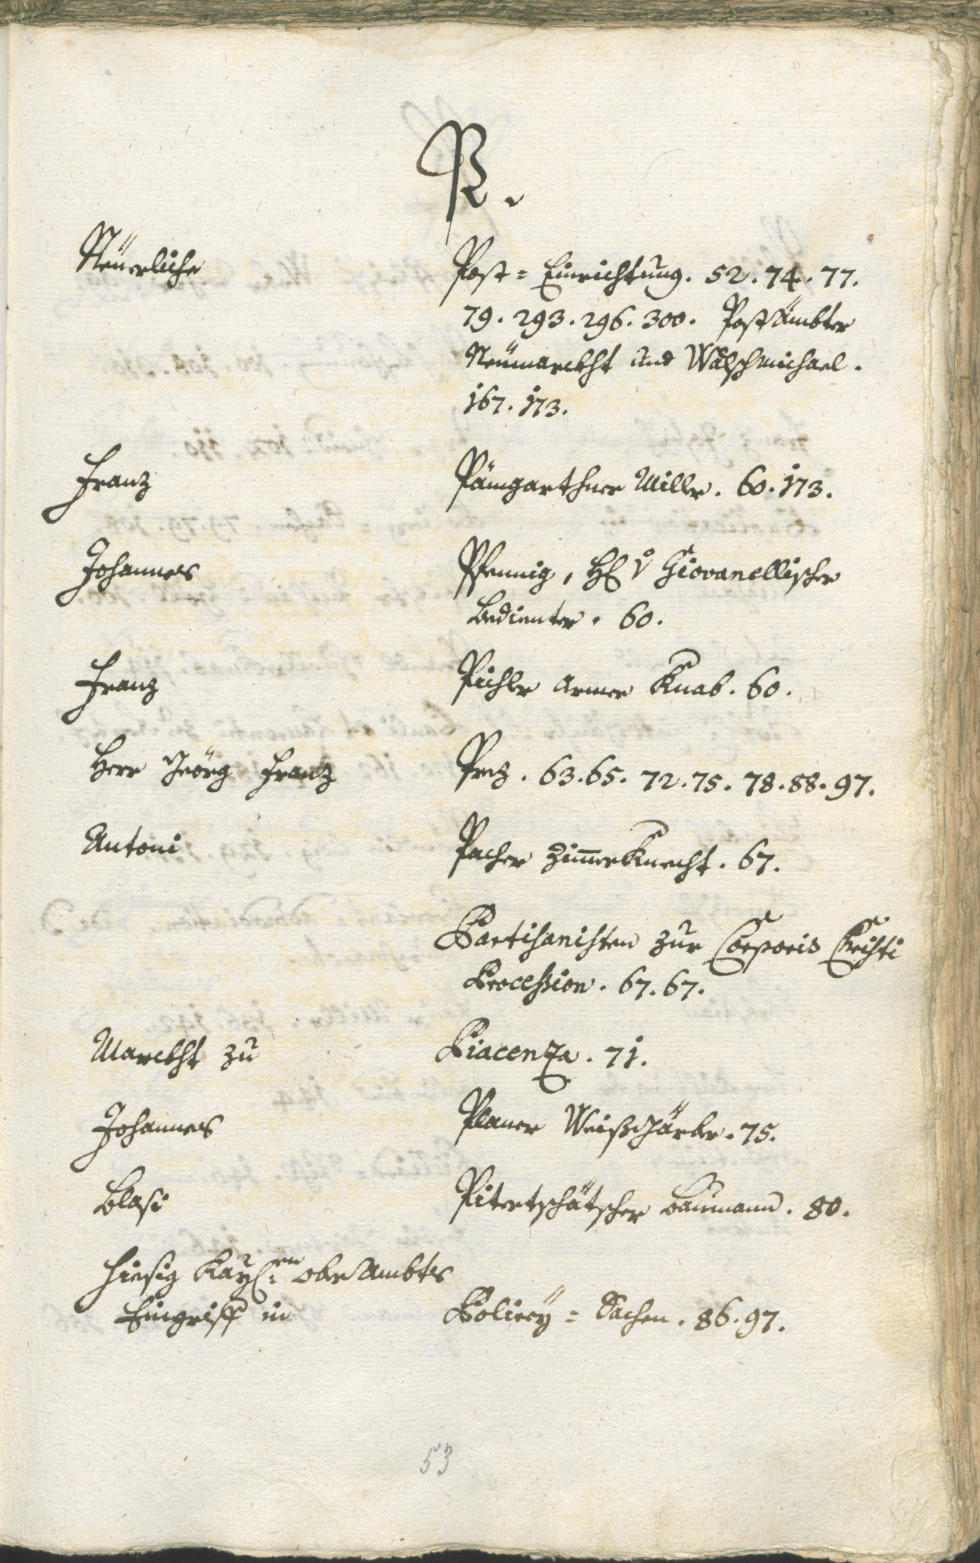 P.
Neüerliche Post = Einrichtung. 52. 74. 77.
79. 293. 296. 300. Postämbter
Neümarckht und Wälschmichael.
167. 173.
Franz Pämgarthner Miller. 60. 173.
Johannes Pfennig, H: v Giovanellischer
Bedienter. 60.
Franz Pichler armer Knab. 60.
Herr Jeörg Franz Prez. 63. 65. 72. 75. 78. 88. 97.
Antoni Pacher Zimmerknecht. 67.
Partisanisten zur Corporis Christi
Procession. 67. 67.
Marckht zu Piacenza. 71.
Johannes Planer Weißgärber. 75.
Blasi Pitertschätscher Baumann. 80.
hiesig Kayl:en oberambts
Eingriff in Policey = Sachen. 86. 97.
53